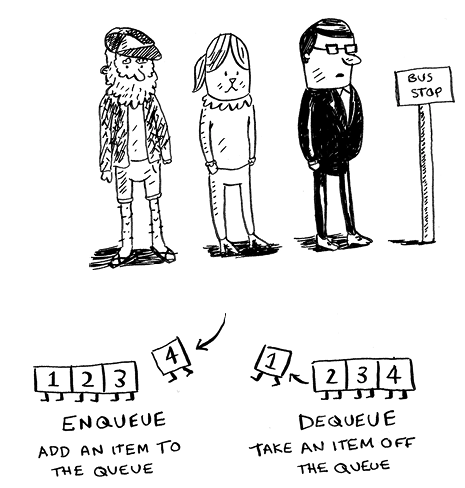 BUS
STOP
1 2 3 4
ENQUEUE
ADD AN ITEM TO
THE QUEUE
1 2 3 4
DEQUEUE
TAKE AN ITEM OFF
THE QUEUE